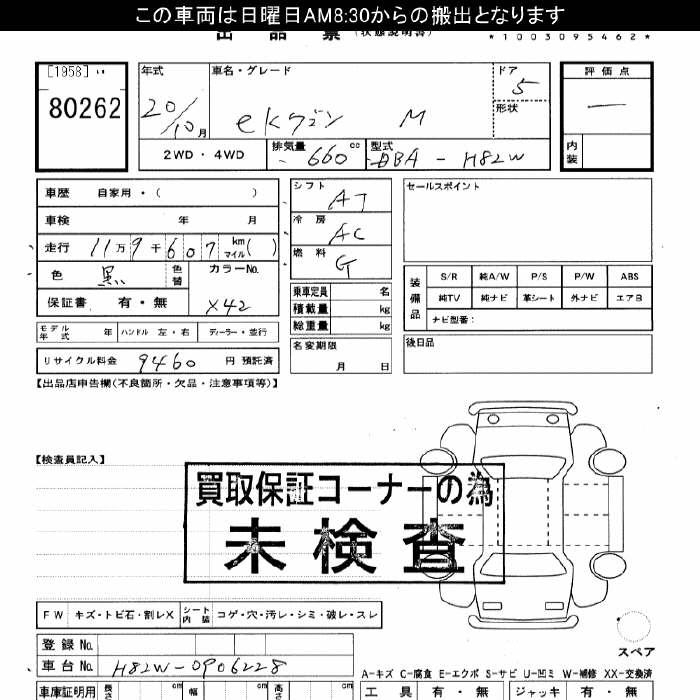 この車両は日曜日AM8:30からの搬出となります
出品票 (状態説明書) *1003095462*
[1958]
80262
年式 車名・グレード ドア 評価点
20/10月 eKワゴン M 5 —
形状
2WD・4WD 排気量 660 cc 型式 DBA - H82W 内装
車歴 自家用・( ) シフト AT セールスポイント
車検 年 月 冷房 AC
走行 11万9千607 km マイル ( ) 燃料 G
色 黒 色替 カラーNo. X42
保証書 有・無
乗車定員 名
積載量 kg
総重量 kg
装備品 S/R 純A/W P/S P/W ABS
純TV 純ナビ 革シート 外ナビ エアB
ナビ型番:
モデル年式 年 ハンドル 左・右 ディーラー・並行 名変期限 月 日 後日品
リサイクル料金 9460 円 預託済
【出品店申告欄(不良箇所・欠品・注意事項等)】
【検査員記入】
買取保証コーナーの為
未検査
FW キズ・トビ石・割レX シート内装 コゲ・穴・汚レ・シミ・破レ・スレ
スペア
登録No.
車台No. H82W-0906228
A-キズ C-腐食 E-エクボ S-サビ U-凹ミ W-補修 XX-交換済
車庫証明用 長さ cm 幅 cm 高さ cm 工具 有・無 ジャッキ 有・無